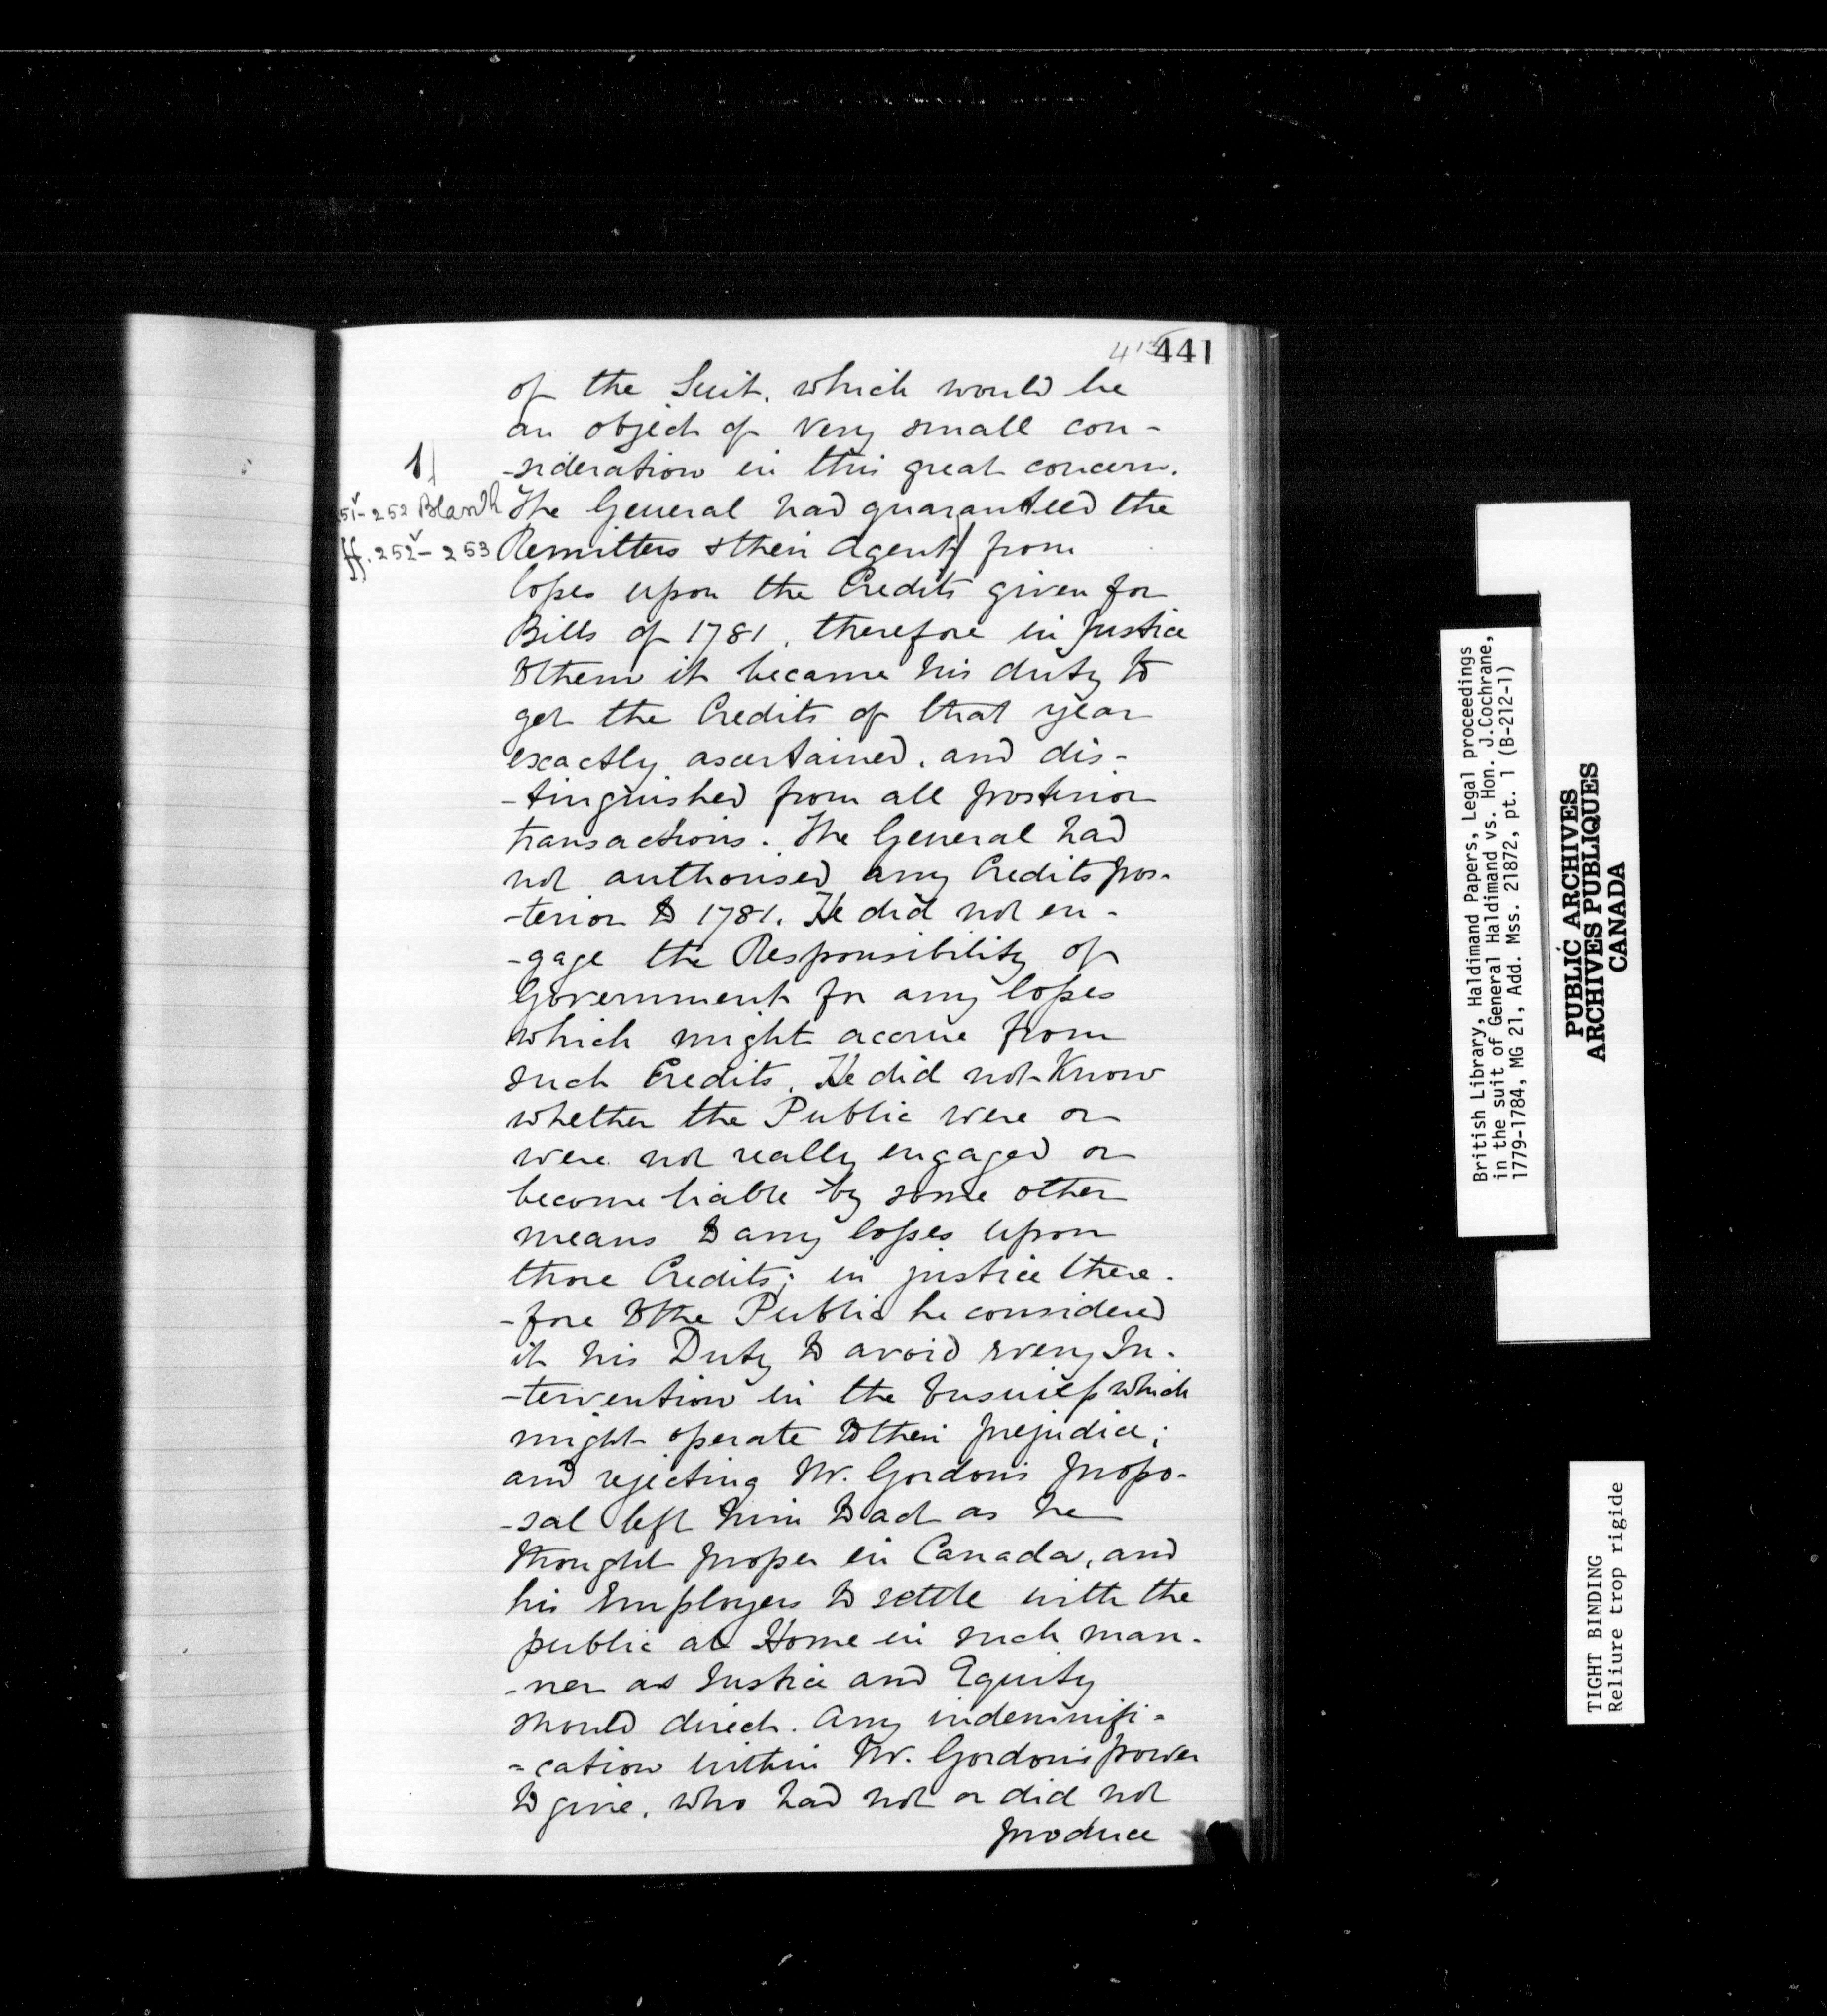 441
of the Suit, which would be
an object of very small con-
-sideration in this great concern.
The General had guaranteed the
Remitters & their Agent/ from
losses upon the Credits given for
Bills of 1781, therefore in Justice
to them it became his duty to
get the Credits of that year
exactly ascertained, and dis-
-tinguished from all posterior
transactions. The General had
not authorised any Credits pos-
-terior to 1781. He did not en-
-gage the Responsibility of
Government for any losses
which might accrue from
such Credits. He did not Know
whether the Public were or
were not really engaged or
become liable by some other
means to any losses upon
those Credits; in justice there-
-fore to the Public he considered
it his Duty to avoid every In-
-tervention in the business which
might operate to their prejudice;
and rejecting Mr. Gordon's propo-
-sal left him to act as he
thought proper in Canada, and
his Employers to settle with the
public at Home in such man-
-ner as Justice and Equity
should direct. Any indemnifi-
-cation within Mr. Gordon's power
to give, who had not or did not
produce
1/
51v-252 Blank
ff. 252v-253
British Library, Haldimand Papers, Legal proceedings
in the suit of General Haldimand vs. Hon. J.Cochrane,
1779-1784, MG 21, Add. Mss. 21872, pt. 1 (B-212-1)
PUBLIC ARCHIVES
ARCHIVES PUBLIQUES
CANADA
TIGHT BINDING
Reliure trop rigide